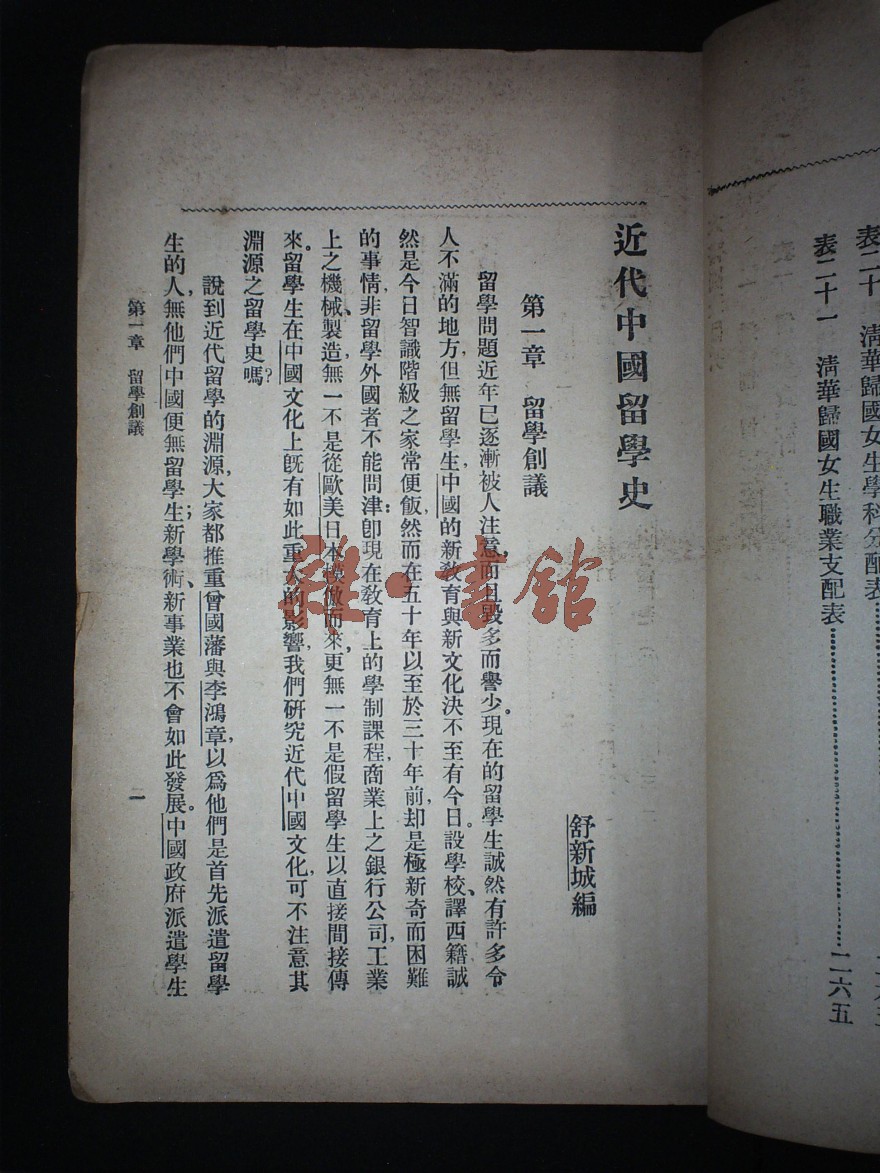 表二十 清華歸國女生學科分配表
表二十一 清華歸國女生職業支配表……二六五
近代中國留學史
舒新城編
第一章 留學創議
留學問題近年已逐漸被人注意，而且毀多而譽少。現在的留學生誠然有許多令
人不滿的地方，但無留學生，中國的新教育與新文化決不至有今日。設學校、譯西籍誠
然是今日智識階級之家常便飯，然而在五十年以至於三十年前，却是極新奇而困難
的事情，非留學外國者不能問津：卽現在教育上的學制課程，商業上之銀行公司，工業
上之機械、製造，無一不是從歐美日本模倣而來，更無一不是假留學生以直接間接傳
來。留學生在中國文化上旣有如此重大的影響，我們研究近代中國文化，可不注意其
淵源之留學史嗎？
說到近代留學的淵源，大家都推重曾國藩與李鴻章，以爲他們是首先派遣留學
生的人，無他們中國便無留學生；新學術、新事業也不會如此發展。中國政府派遣學生
第一章 留學創議
一
雜·書館